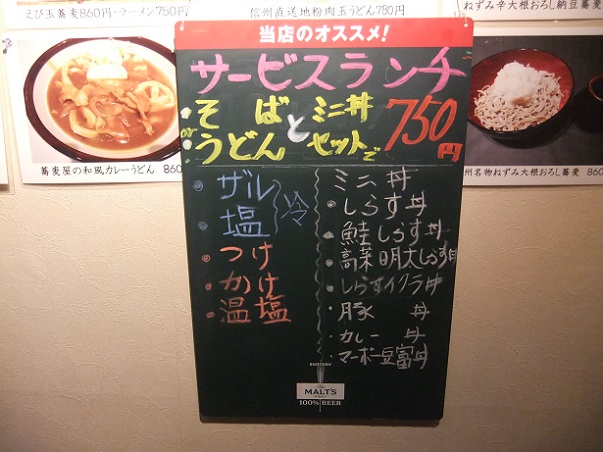 えび玉蕎麦860円・ラーメン750円
信州直送地粉肉玉うどん780円
ねずみ辛大根おろし納豆蕎麦
当店のオススメ!
サービスランチ
・そば と ミニ丼
or うどん セットで 750円
蕎麦屋の和風カレーうどん 860
州名物ねずみ大根おろし蕎麦 860
・ザル
・塩 冷
・つけ
・かけ
・温塩
ミニ丼
・しらす丼
・鮭しらす丼
・高菜明太しらす丼
・しらすイクラ丼
・豚丼
・カレー丼
・マーボー豆富丼
SUNTORY
The
MALT'S
100% BEER